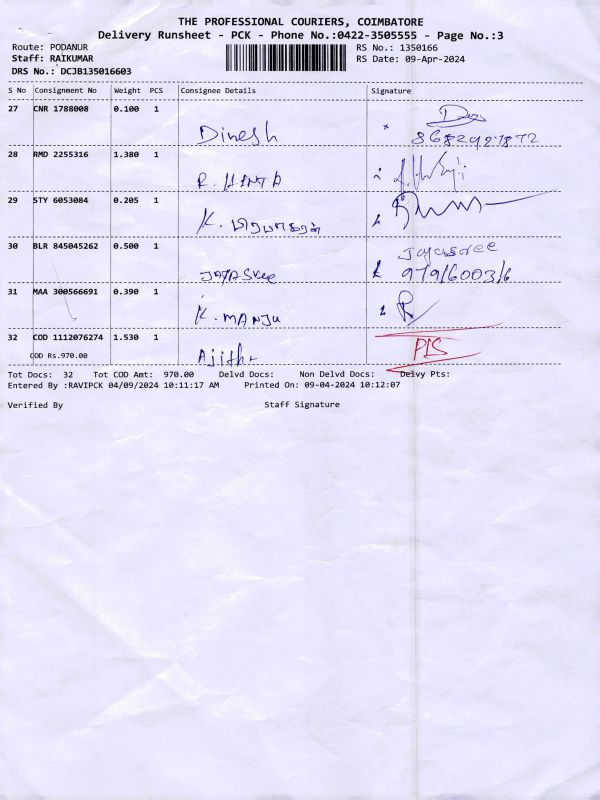 THE PROFESSIONAL COURIERS, COIMBATORE
Delivery Runsheet - PCK - Phone No.:0422-3505555 - Page No.:3
Route: PODANUR RS No.: 1350166
Staff: RAIKUMAR RS Date: 09-Apr-2024
DRS No.: DCJB135016603
S No Consignment No Weight PCS Consignee Details Signature
27 CNR 1788008 0.100 1
Dinesh
28 RMD 2255316 1.380 1
29 STY 6053084 0.205 1
K.
30 BLR 845045262 0.500 1 Jayasree
JAYASree
31 MAA 300566691 0.390 1
K. MANJU
32 COD 1112076274 1.530 1
COD Rs.970.00
Tot Docs: 32 Tot COD Amt: 970.00 Delvd Docs: Non Delvd Docs: Delvy Pts:
Entered By :RAVIPCK 04/09/2024 10:11:17 AM Printed On: 09-04-2024 10:12:07
Verified By Staff Signature